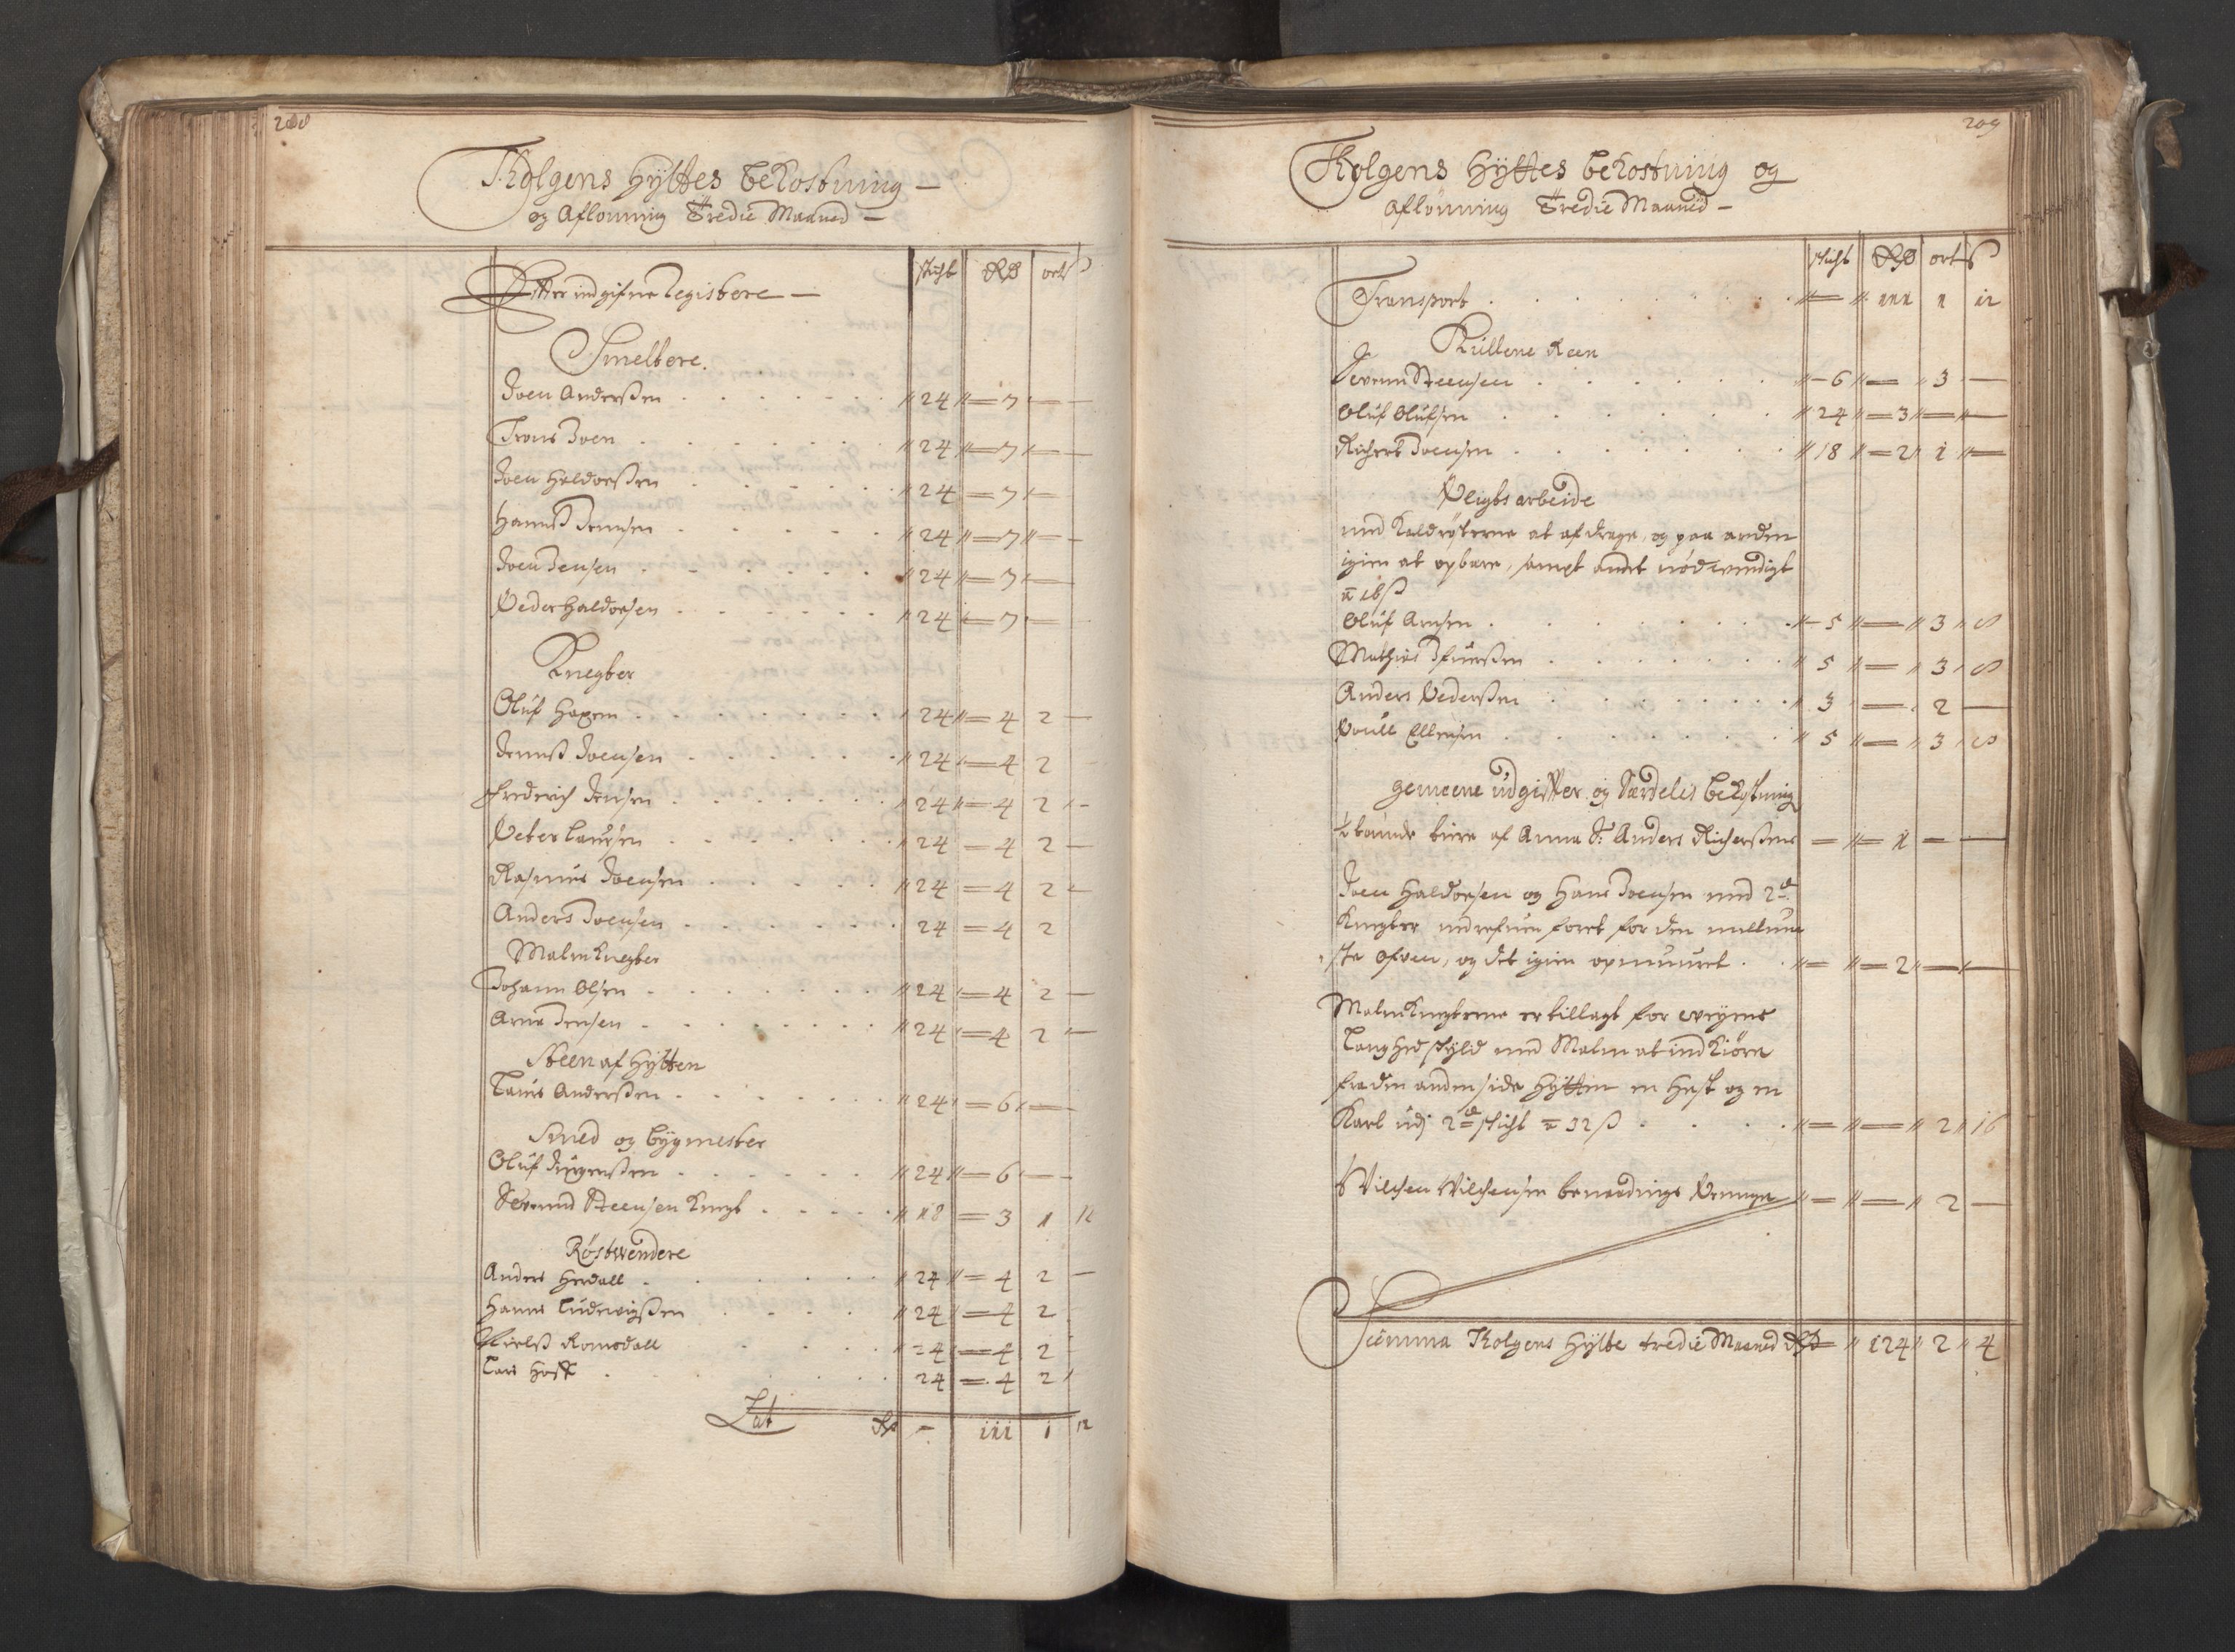 208
Tholgens Hyttes bekostning —
og Aflonning Tredie Maaned —
skicht Rd ort ß
Efter indgifne Registere —
Smeltere.
Joen Anderßen . . . . . . " 24 " — 7 — —
Trons Joen . . . . . . " 24 " — 7 " — —
Joen Haldorßen . . . . . . " 24 — 7 " —
Hannß Jennsen . . . . . " 24 " — 7 " — —
Joen Jensen . . . . . . " 24 — 7 " —
Peder Haldorsen . . . . . " 24 — 7 —
Knegter
Oluf Hagen . . . . . . . " 24 " — 4 2 —
Jennß Joensen . . . . . " 24 " — 4 2
Frederich Jensen . . . . . " 24 " — 4 2 " —
Peter Laursen . . . . . . " 24 — 4 2 —
Rasmus Joensen . . . . . " 24 — 4 2 —
Anders Joensen . . . . . . 24 — 4 2
Malm Knegter
Johann Olsen . . . . . . " 24 " — 4 2 —
Arne Jensen . . . . . . . " 24 " — 4 2 " —
Steen af Hytten
Laurs Anderßen . . . . . . " 24 " — 6 " —
Smed og bygmester
Oluf Jürgenßen . . . . . . " 24 " — 6 " — —
Sevrind Steensen Knegt . . . . . " 18 — 3 1 12
Röstwendere
Anders Herdall . . . . . " 24 " — 4 2 —
Hanns Ludewigßen . . . . " 24 " — 4 2
Nielß Romsdall . . . . " 24 " — 4 2
Lars Hoff . . . . . 24 — 4 2
Lat Rd — 111 1 12
209
Tholgens Hyttes bekostning og
Aflönning Tredie Maaned —
skicht Rd ort ß
Transport . . . . . . . . " — " 111 1 12
Kullene Reen
Sevrinn Steensen . . . . . . " — 6 " — " 3 —
Oluf Olufsen . . . . . . " 24 " — 3 " — " —
Richert Joensen . . . . . . . " 18 " — 2 " 1 " —
Pligts arbeide
med Kaldrösterne at afdrage, og paa anden
igien at opbære, sampt andet nödwendigt
a 16 ß
Oluf Arnsen . . . . . . . " — 5 " — " 3 " 8
Mathies Ifuerßen . . . . . . . " 5 " — " 3 " 8
Anders Pederßen . . . . . . . " 3 " — 2 —
Poull Ellensen . . . . . . . " 5 " — " 3 " 8
gemeene udgifter og Særdeles bekostning
1/2 tünde tiere af Anna Sl: Anders Richerßens — " — 1 — —
Joen Haldorsen og Hans Joensen med 2de
Knegter nedrefuen foret for den mellum
ste Ofven, og det igien opmuuret . . " — " — 2 " — " —
Malm Knegterne er tillagt for weyens
Langhed skyld med Malm at ind Kiöre
fra den anden side Hytten en Hest og en
Karl udj 2de skicht a 32 ß . . . . " — " — " 2 " 16
Wilchen Wilchensen beneedings Penngn " — " — " 2 —
Summa Tholgens Hytte tredie Maaned Rd — " 124 " 2 " 4